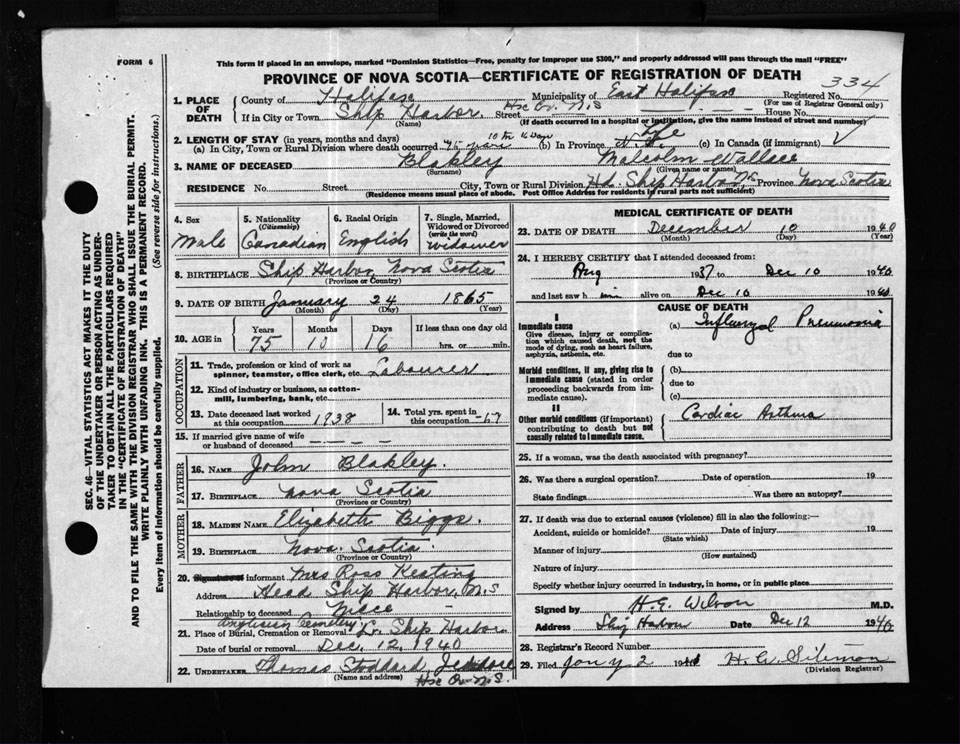 FORM 6
This form if placed in an envelope, marked "Dominion Statistics—Free, penalty for improper use $300," and properly addressed will pass through the mail "FREE"
PROVINCE OF NOVA SCOTIA—CERTIFICATE OF REGISTRATION OF DEATH
334
1. PLACE OF DEATH
County of Halifax Municipality of East Halifax Registered No.
(For use of Registrar General only)
If in City or Town Ship Harbor Hx Co. N.S Street House No.
(Name) (If death occurred in a hospital or institution, give the name instead of street and number)
2. LENGTH OF STAY (in years, months and days)
(a) In City, Town or Rural Division where death occurred 75 years 10 m 16 days (b) In Province Life (c) In Canada (if immigrant)
3. NAME OF DECEASED Blakley Malcolm Wallace
(Surname) (Given name or names)
RESIDENCE No. Street City, Town or Rural Division Hd. Ship Harbor, N.S Province Nova Scotia
(Residence means usual place of abode. Post Office Address for residents in rural parts not sufficient)
4. Sex Male
5. Nationality (Citizenship) Canadian
6. Racial Origin English
7. Single, Married, Widowed or Divorced (write the word) Widower
8. BIRTHPLACE Ship Harbor, Nova Scotia
(Province or Country)
9. DATE OF BIRTH January 24 1865
(Month) (Day) (Year)
10. AGE in Years 75 Months 10 Days 16 If less than one day old hrs. or min.
OCCUPATION
11. Trade, profession or kind of work as spinner, teamster, office clerk, etc. Labourer
12. Kind of industry or business, as cotton-mill, lumbering, bank, etc.
13. Date deceased last worked at this occupation 1938
14. Total yrs. spent in this occupation
15. If married give name of wife or husband of deceased
FATHER
16. NAME John Blakley.
17. BIRTHPLACE Nova Scotia
(Province or Country)
MOTHER
18. MAIDEN NAME Elizabeth Biggs.
19. BIRTHPLACE Nova Scotia.
(Province or Country)
20. Signature of informant Mrs Ross Keating
Address Head Ship Harbor, N.S
Relationship to deceased Niece
Anglican Cemetery
21. Place of Burial, Cremation or Removal Lr. Ship Harbor.
Date of burial or removal Dec. 12. 1940
22. UNDERTAKER Thomas Stoddard Jeddore
(Name and address) Hx Co. N.S.
MEDICAL CERTIFICATE OF DEATH
23. DATE OF DEATH December 10 1940
(Month) (Day) (Year)
24. I HEREBY CERTIFY that I attended deceased from
Aug 1937 to Dec 10 1940
and last saw him alive on Dec 10 1940
CAUSE OF DEATH
I
Immediate cause
Give disease, injury or complication which caused death, not the mode of dying, such as heart failure, asphyxia, asthenia, etc.
(a) Influenzal Pneumonia
due to
Morbid conditions, if any, giving rise to immediate cause (stated in order proceeding backwards from immediate cause).
(b)
due to
(c)
II
Other morbid conditions (if important) contributing to death but not causally related to immediate cause.
Cardiac Asthma
25. If a woman, was the death associated with pregnancy?
26. Was there a surgical operation? Date of operation 19
State findings Was there an autopsy?
27. If death was due to external causes (violence) fill in also the following:—
Accident, suicide or homicide? Date of injury 19
(State which)
Manner of injury
(How sustained)
Nature of injury
Specify whether injury occurred in industry, in home, or in public place
Signed by H.G. Wilson M.D.
Address Ship Harbour Date Dec 12 1940
28. Registrar's Record Number
29. Filed Jan'y 2 1941
(Division Registrar)
SEC. 46—VITAL STATISTICS ACT MAKES IT THE DUTY
OF THE UNDERTAKER OR PERSON ACTING AS UNDER-
TAKER TO OBTAIN ALL THE PARTICULARS REQUIRED
IN THE "CERTIFICATE OF REGISTRATION OF DEATH"
AND TO FILE THE SAME WITH THE DIVISION REGISTRAR WHO SHALL ISSUE THE BURIAL PERMIT.
WRITE PLAINLY WITH UNFADING INK. THIS IS A PERMANENT RECORD.
Every item of information should be carefully supplied. (See reverse side for instructions.)